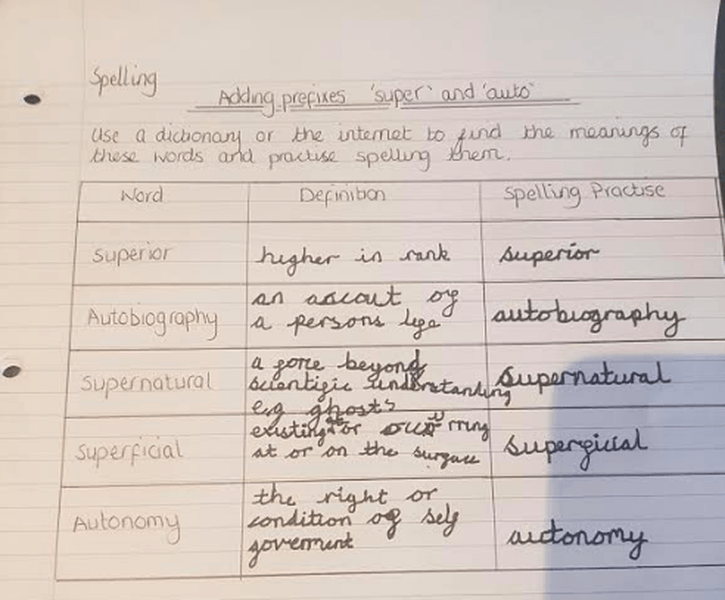 Spelling
Adding prefixes 'super' and 'auto'
Use a dictionary or the internet to find the meanings of
these words and practise spelling them.
Word Definition Spelling Practise
Superior higher in rank superior
Autobiography an ascout of
a persons life autobiography
Supernatural a force beyond
scientific understanding
e.g ghosts supernatural
Superficial existing or occurring
at or on the surface superficial
Autonomy the right or
condition of self
goverment autonomy